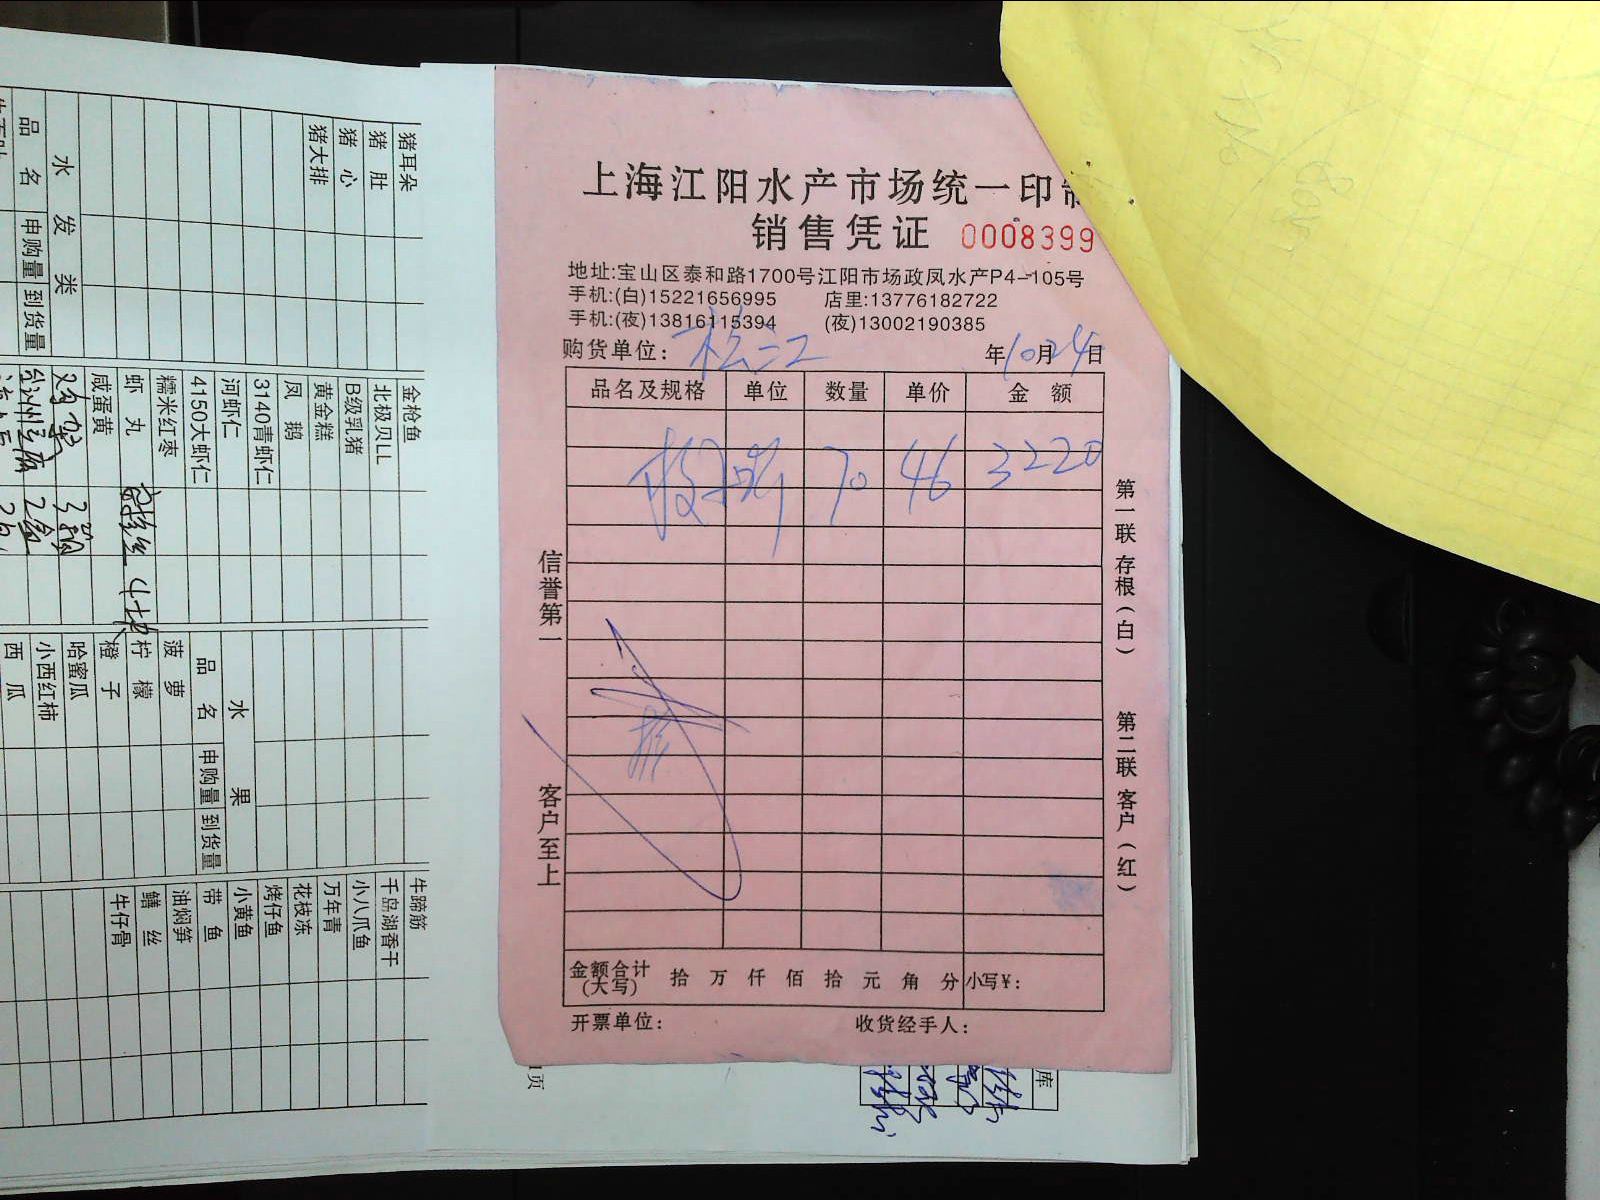 上海江阳水产市场统一印制
销售凭证 0008399
地址:宝山区泰和路1700号江阳市场政凤水产P4-105号
手机:(白)15221656995 店里:13776182722
手机:(夜)13816115394 (夜)13002190385
购货单位: 松江 年10月24日
品名及规格 单位 数量 单价 金额
70 46 3220
信誉第一
客户至上
第一联 存根(白)
第二联 客户(红)
金额合计(大写) 拾 万 仟 佰 拾 元 角 分 小写¥:
开票单位: 收货经手人:
猪耳朵
猪肚
猪心
猪大排
水发类
品名 申购量 到货量
金枪鱼
北极贝LL
B级乳猪
黄金糕
凤鹅
3140青虾仁
河虾仁
4150大虾仁
糯米红枣
虾丸
咸蛋黄
水果
品名 申购量 到货量
菠萝
柠檬
橙子
哈蜜瓜
小西红柿
西瓜
牛蹄筋
千岛湖香干
小八爪鱼
万年青
花枝冻
烤仔鱼
小黄鱼
带鱼
油焖笋
鳝丝
牛仔骨
页
库